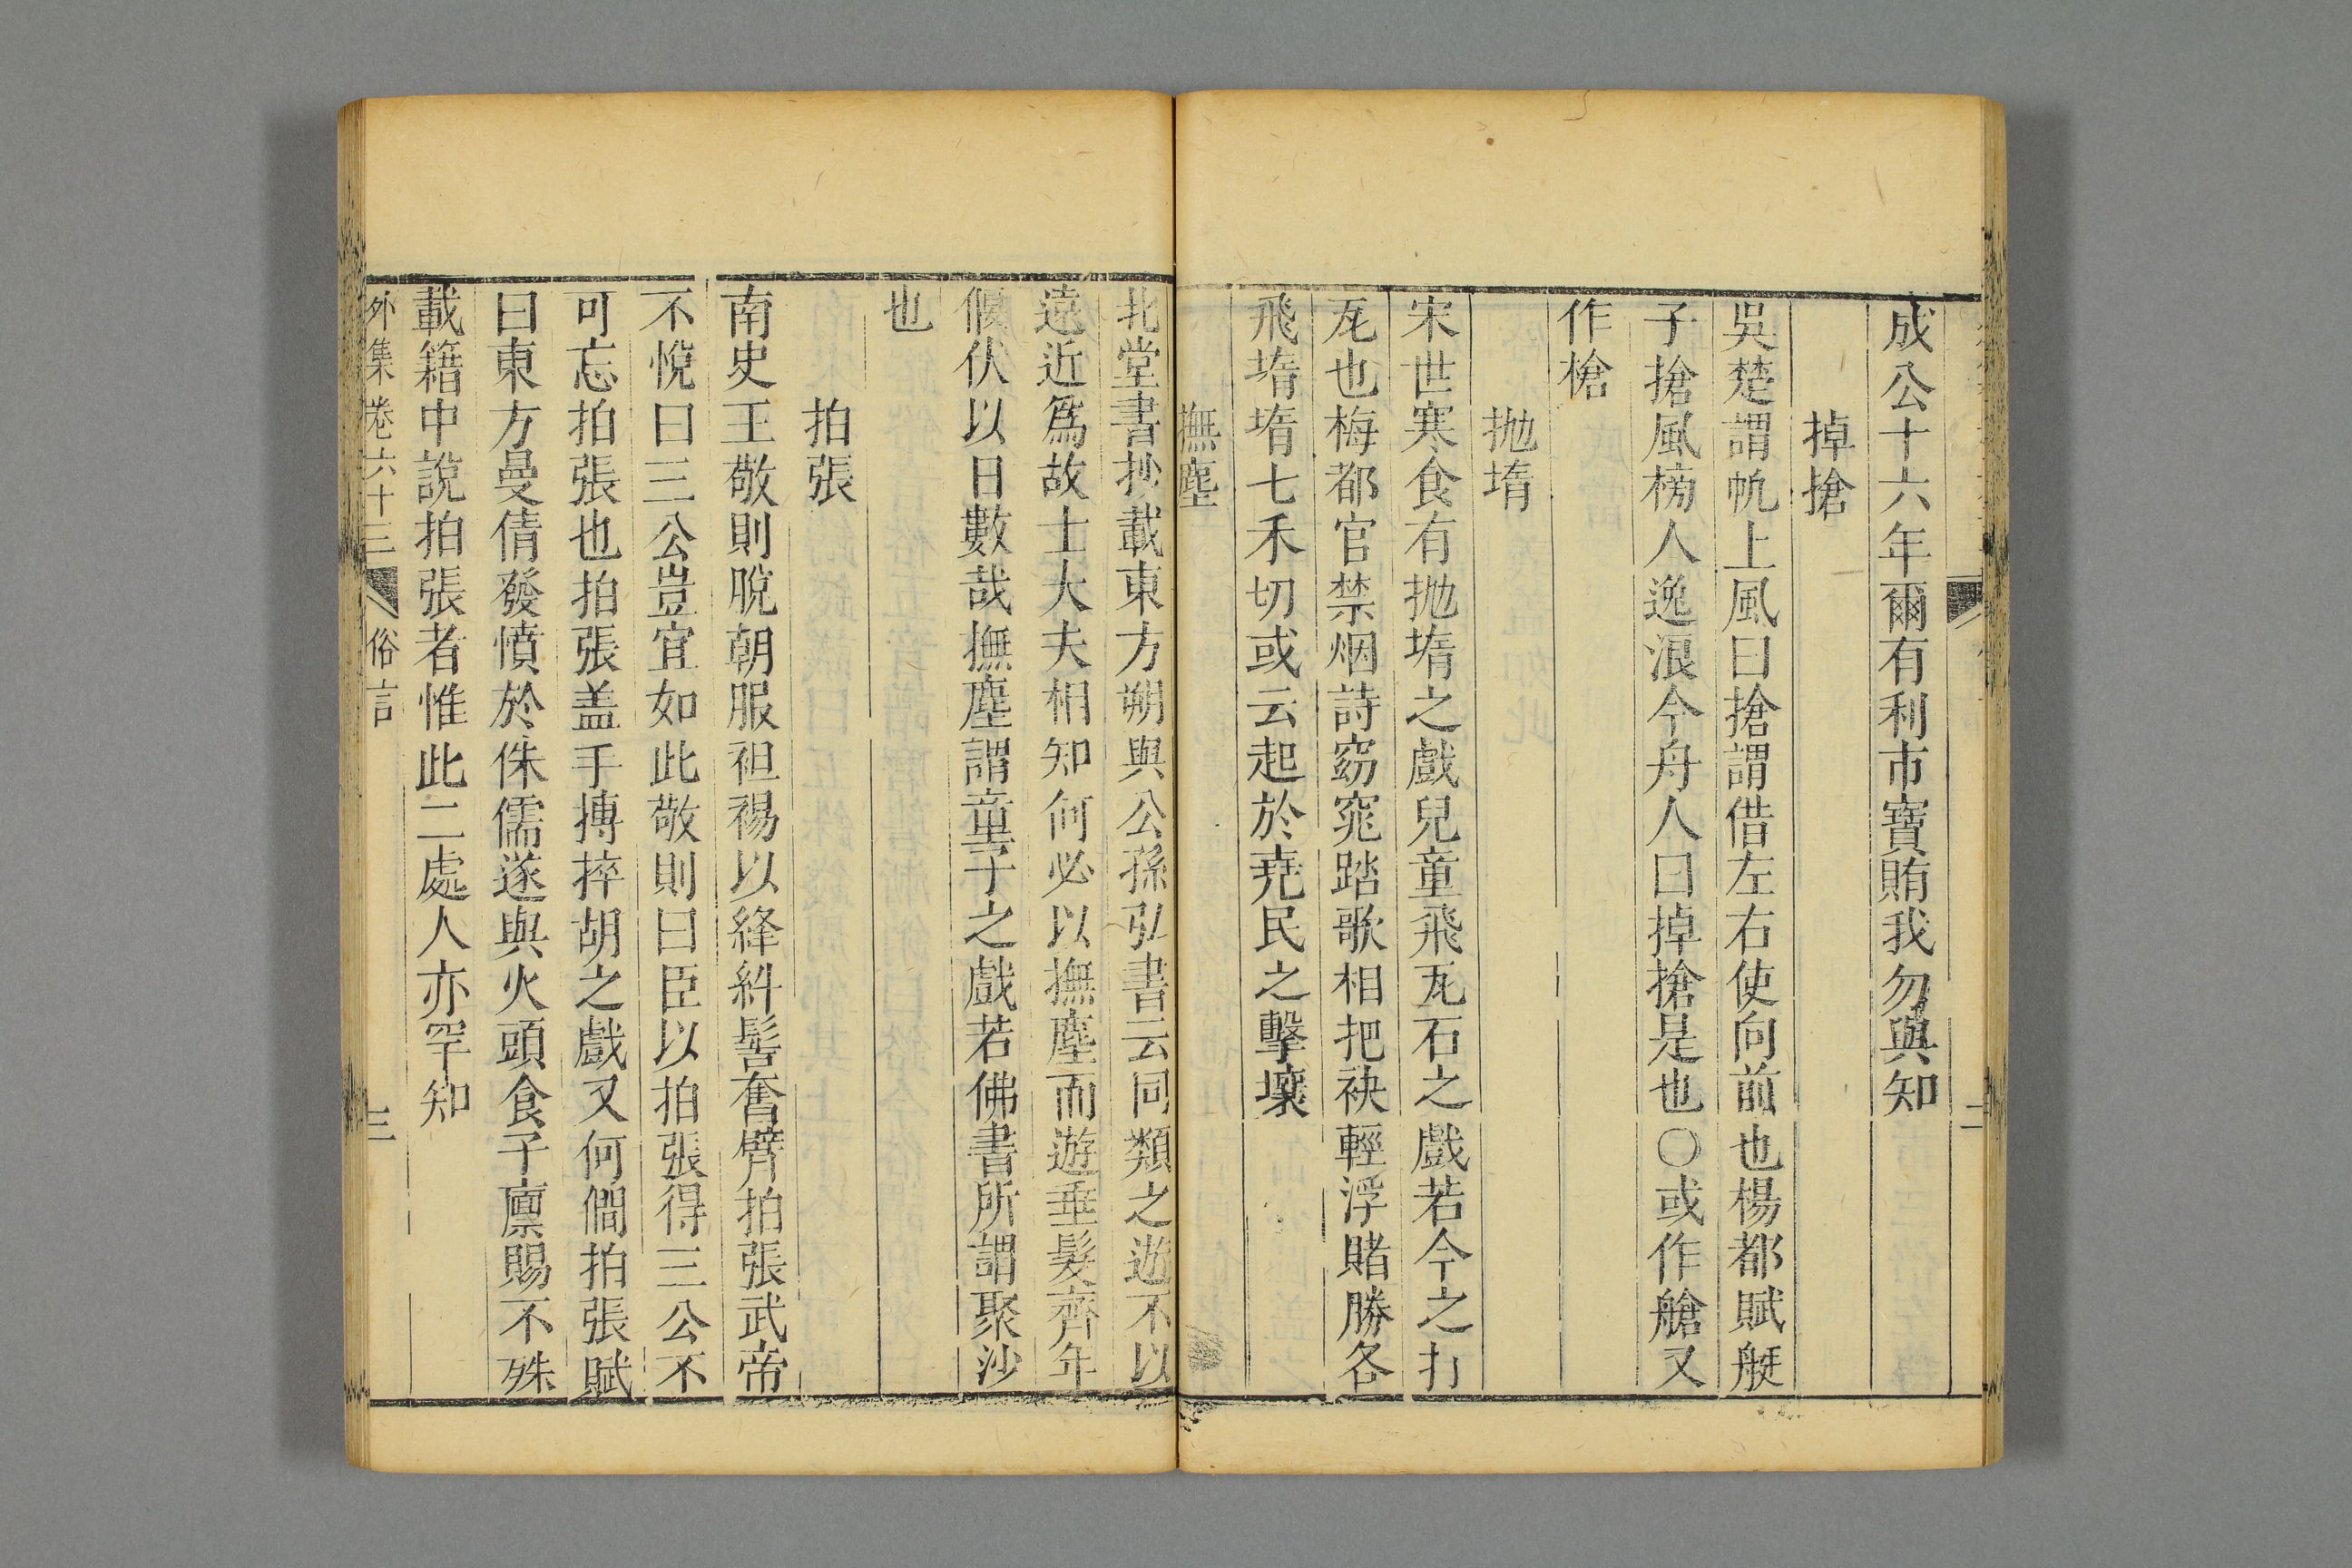 成公十六年爾有利市寶賄我勿與知
掉搶
吳楚謂帆上風曰搶謂借左右使向前也楊都賦艇
子搶風榜人逸浪今舟人曰掉搶是也〇或作艙又
作槍
拋堶
宋世寒食有拋堶之戲兒童飛瓦石之戲若今之打
瓦也梅都官禁烟詩窈窕踏歌相把袂輕浮賭勝各
飛堶堶七禾切或云起於尭民之擊壤
撫塵
北堂書抄載東方朔與公孫弘書云同類之遊不以
遠近爲故士大夫相知何必以撫塵而遊垂髮齊年
偃伏以日數哉撫塵謂童子之戲若佛書所謂聚沙
也
拍張
南史王敬則脫朝服袒裼以絳糾髻奮臂拍張武帝
不悅曰三公豈宜如此敬則曰臣以拍張得三公不
可忘拍張也拍張盖手搏捽胡之戲又何僩拍張賦
曰東方曼倩發憤於侏儒遂與火頭食子廪賜不殊
載籍中說拍張者惟此二處人亦罕知
外集卷六十三 俗言 三